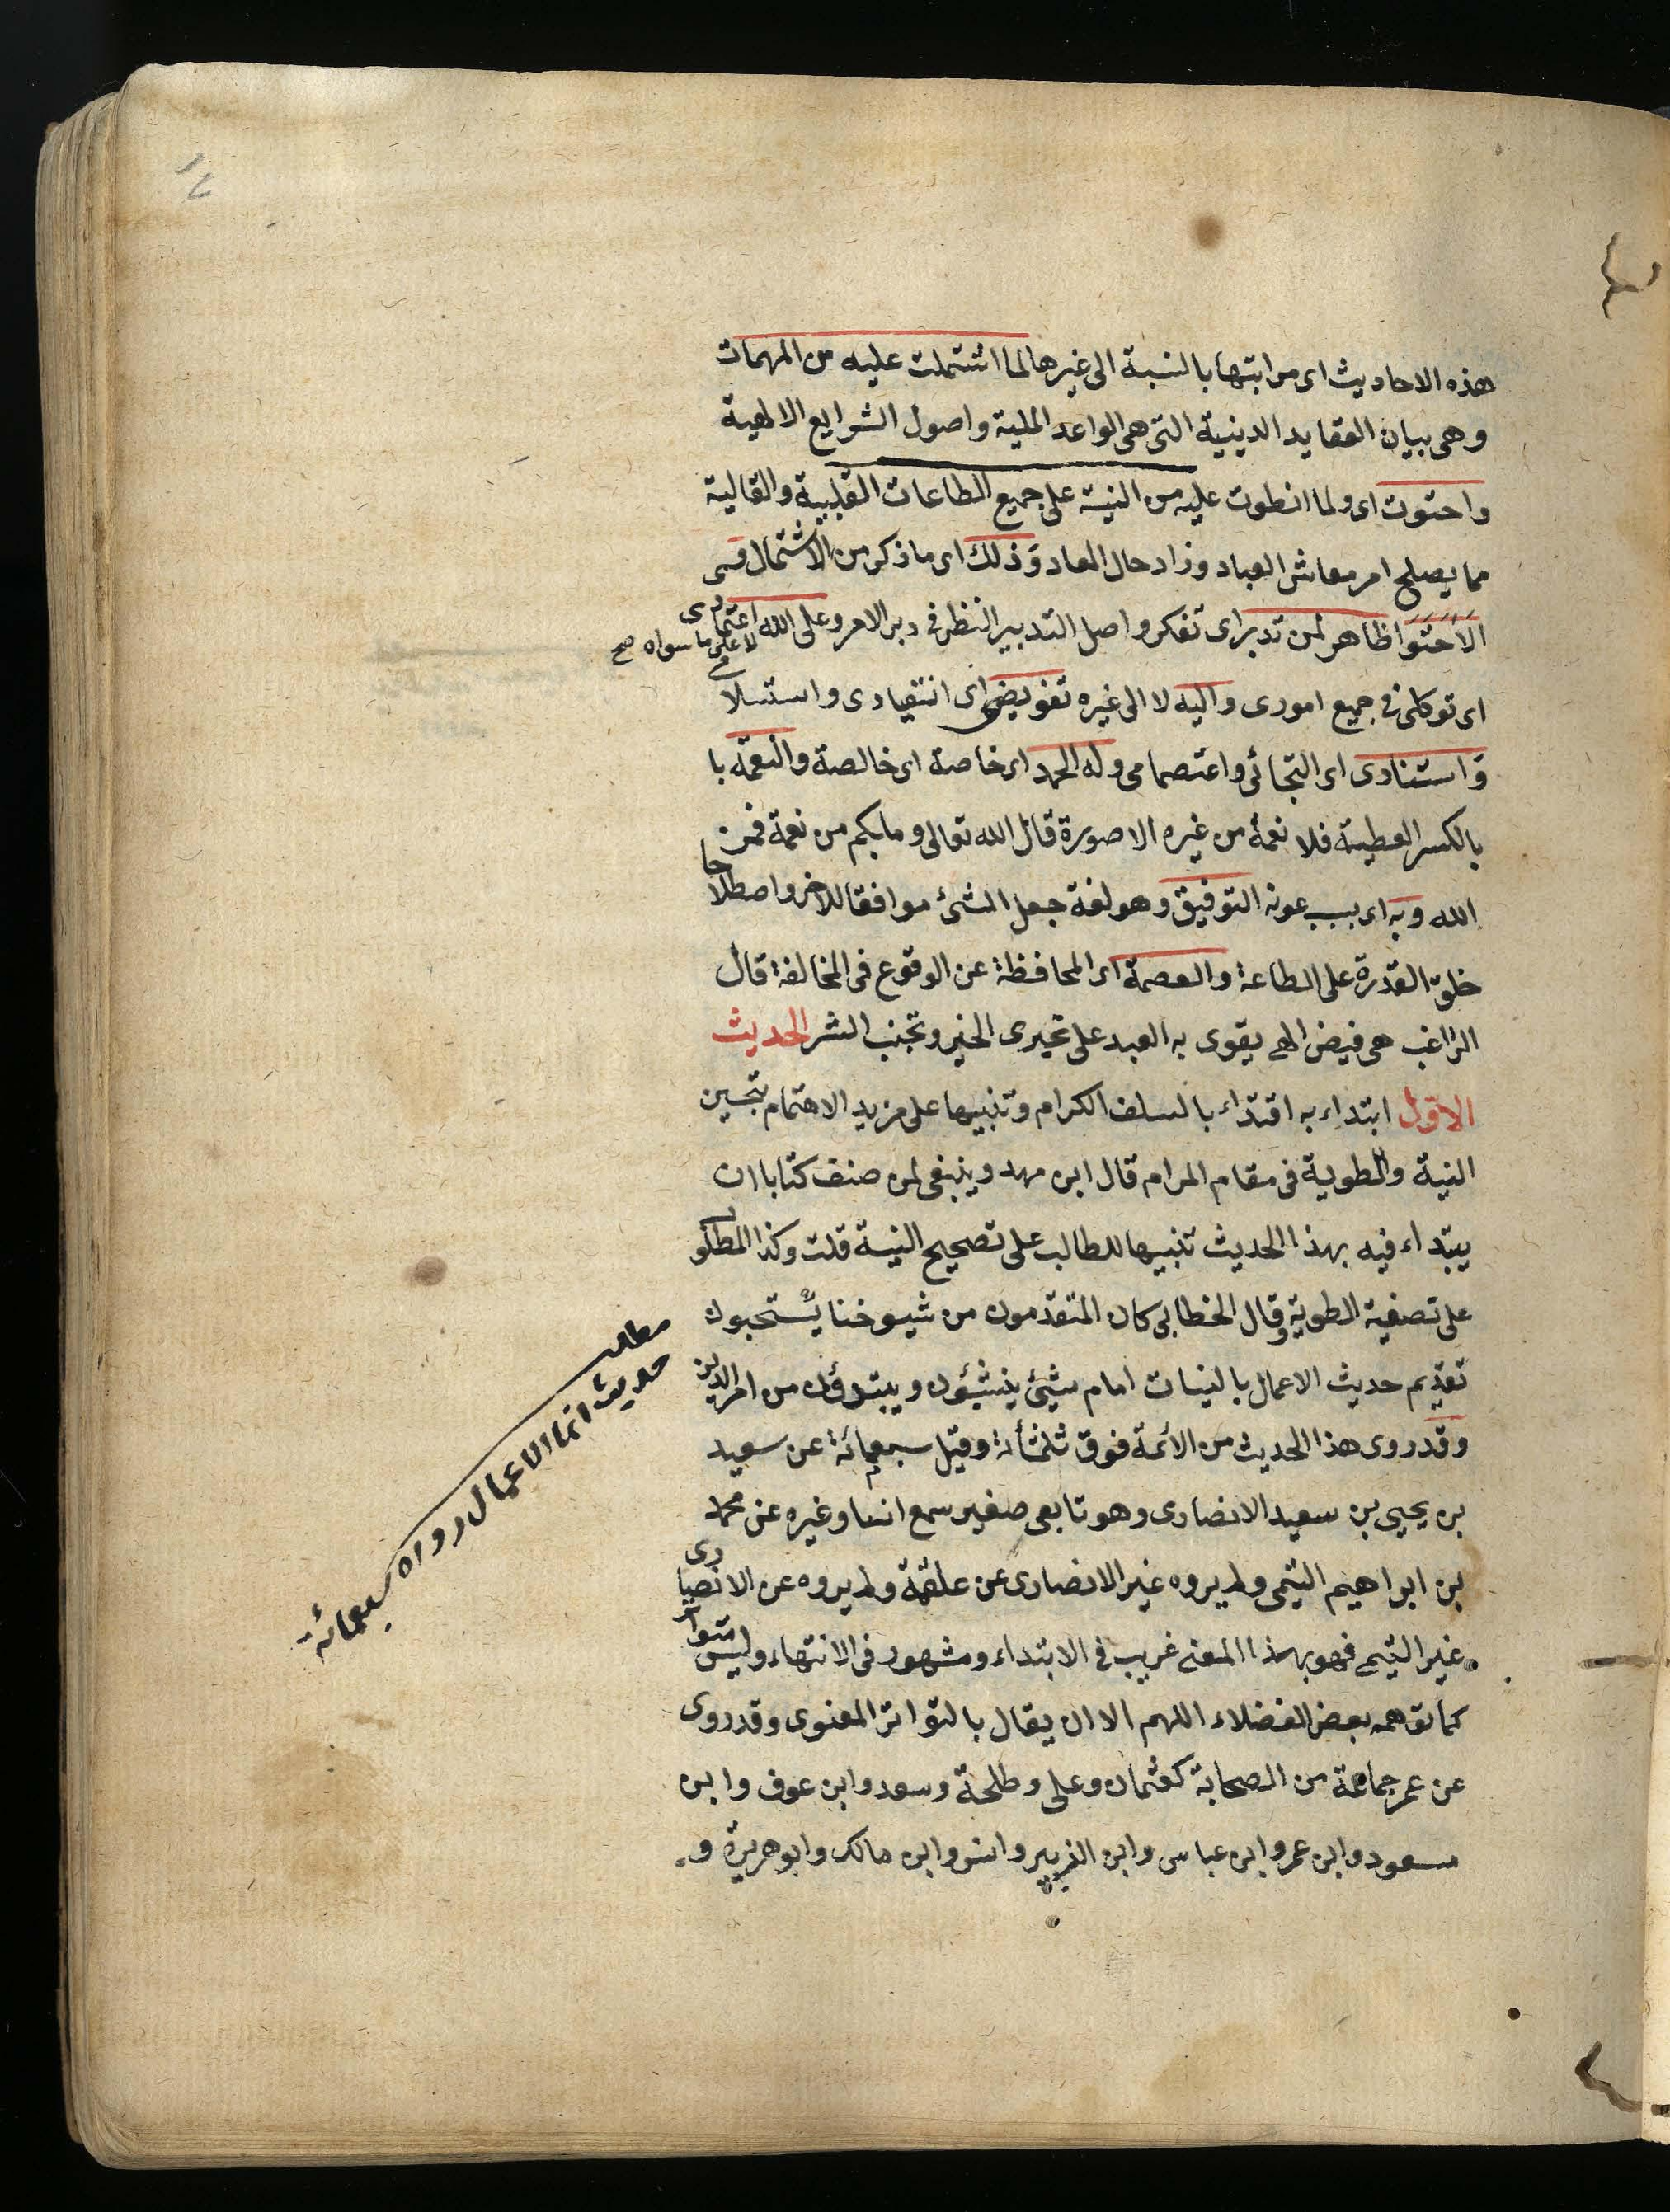 هذه الاحاديث اى مراتبتها بالنسبة الى غيرها لما اشتملت عليه من المهمات
وهى بيان العقايد الدينية التى هى الواعد الملية واصول الشرايع الالهية
واحتوت اى ولما انطوت عليه من النية على جميع الطاعات القلبية والقالية
مما يصلح امر معاش العباد وزاد حال المعاد وذلك اى ما ذكر من الاشتمال و
الاحتوا ظاهر لمن تدبر اى تفكر واصل التدبير النظر فى دبر الامر وعلى الله اعتمادى
لا على ما سواه صح
اى توكلى فى جميع امورى واليه لا الى غيره تفويضى اى انقيادى واستسلامى
واستنادى اى التجائى واعتصمامى وله الحمد اى خاصة اى خالصة والنعمة با
بالكسر العطية فلا نعمة من غيره الا صورة قال الله تعالى وما بكم من نعمة فمن
الله وبه اى بسبب عونه التوفيق وهو لغة جعل الشئ موافقا للاخر واصطلاحا
خلق القدرة على الطاعة والعصمة اى المحافظة عن الوقوع فى المخالفة قال
الراغب هى فيض الهى يقوى به العبد على تحيرى الخير وتجنب الشر الحديث
الاول ابتداء به اقتداء بالسلف الكرام وتنبيها على مزيد الاهتمام بتحسين
النية والطوية فى مقام المرام قال ابن مهد وينبغى لمن صنف كتابا ان
يبتداء فيه بهذا الحديث تنبيها للطالب على تصحيح النية قلت وكذا المطلوب
على تصفية الطوية وقال الخطابى كان المتقدمون من شيوخنا يستحبون
تقديم حديث الاعمال بالنيات امام شيئ ينشئون ويبتدؤن من امر الدين
وقد روى هذا الحديث من الائمة فوق ثلثمأئة وقيل سبعمائة عن سعيد
بن يحيى بن سعيد الانصارى وهو تابعى صغير سمع انسا وغيره عن محمد
بن ابراهيم التيمى ولم يروه غير الانصارى عن علقمة ولم يروه عن الانصارى
غير التيمى فهو بهذا المعنى غريب فى الابتداء ومشهور فى الانتهاء وليس متوا
كما توهمه بعض الفضلاء اللهم الا ان يقال بالتواتر المعنوى وقد روى
عن عمر جماعة من الصحابة كعثمان وعلى وطلحة وسعد وابن عوف وابن
مسعود وابن عمر وابن عباس وابن الزبير وانس وابن مالك وابو هريرة و
مطلب
حديث انما الاعمال رواه سبعمائة